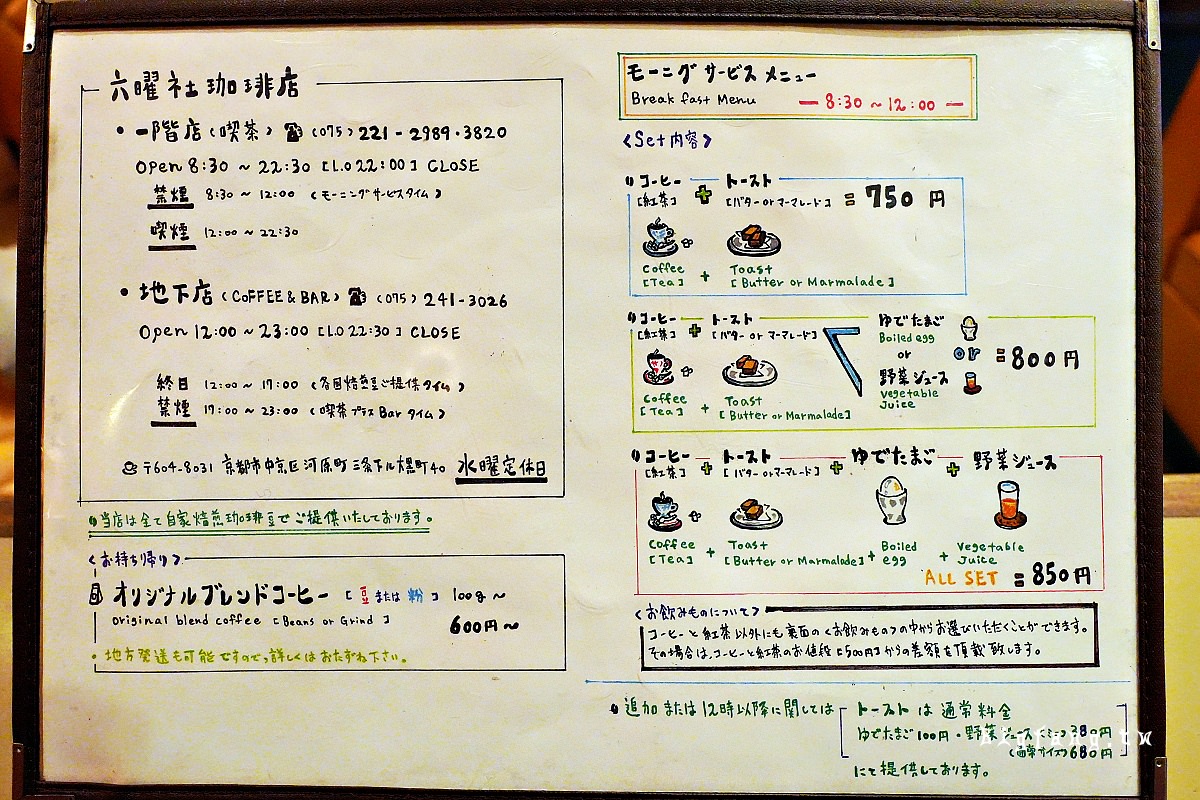 六曜社珈琲店
・一階店(喫茶) ☎(075)221-2989・3820
Open 8:30 ~ 22:30 [L.O 22:00] CLOSE
禁煙 8:30 ~ 12:00 (モーニングサービスタイム)
喫煙 12:00 ~ 22:30
・地下店(COFFEE & BAR) ☎(075)241-3026
Open 12:00 ~ 23:00 [L.O 22:30] CLOSE
終日 12:00 ~ 17:00 (各国焙煎豆ご提供タイム)
禁煙 17:00 ~ 23:00 (喫茶プラスBarタイム)
〒604-8031 京都市中京区河原町三条下ル大黒町40 水曜定休日
当店は全て自家焙煎珈琲豆でご提供いたしております。
<お持ち帰り>
オリジナルブレンドコーヒー [豆または粉] 100g~
original blend coffee [Beans or Grind] 600円~
・地方発送も可能ですので、詳しくはおたずね下さい。
モーニングサービスメニュー
Breakfast Menu — 8:30 ~ 12:00 —
<Set内容>
コーヒー + トースト
[紅茶] [バターorマーマレード] = 750円
Coffee + Toast
[Tea] [Butter or Marmalade]
コーヒー + トースト ゆでたまご
[紅茶] [バターorマーマレード] Boiled egg
or or = 800円
野菜ジュース
Vegetable Juice
Coffee + Toast
[Tea] [Butter or Marmalade]
コーヒー + トースト + ゆでたまご + 野菜ジュース
[紅茶] [バターorマーマレード]
Coffee + Toast + Boiled egg + Vegetable Juice
[Tea] [Butter or Marmalade]
ALL SET = 850円
<お飲みものについて>
コーヒーと紅茶以外にも裏面の<お飲みもの>の中からお選びいただくことができます。
その場合は、コーヒーと紅茶のお値段[500円]からの差額を頂戴致します。
追加または12時以降に関しては トーストは通常料金
ゆでたまご100円・野菜ジュース(ミニ)380円
(通常サイズ)680円
にて提供しております。